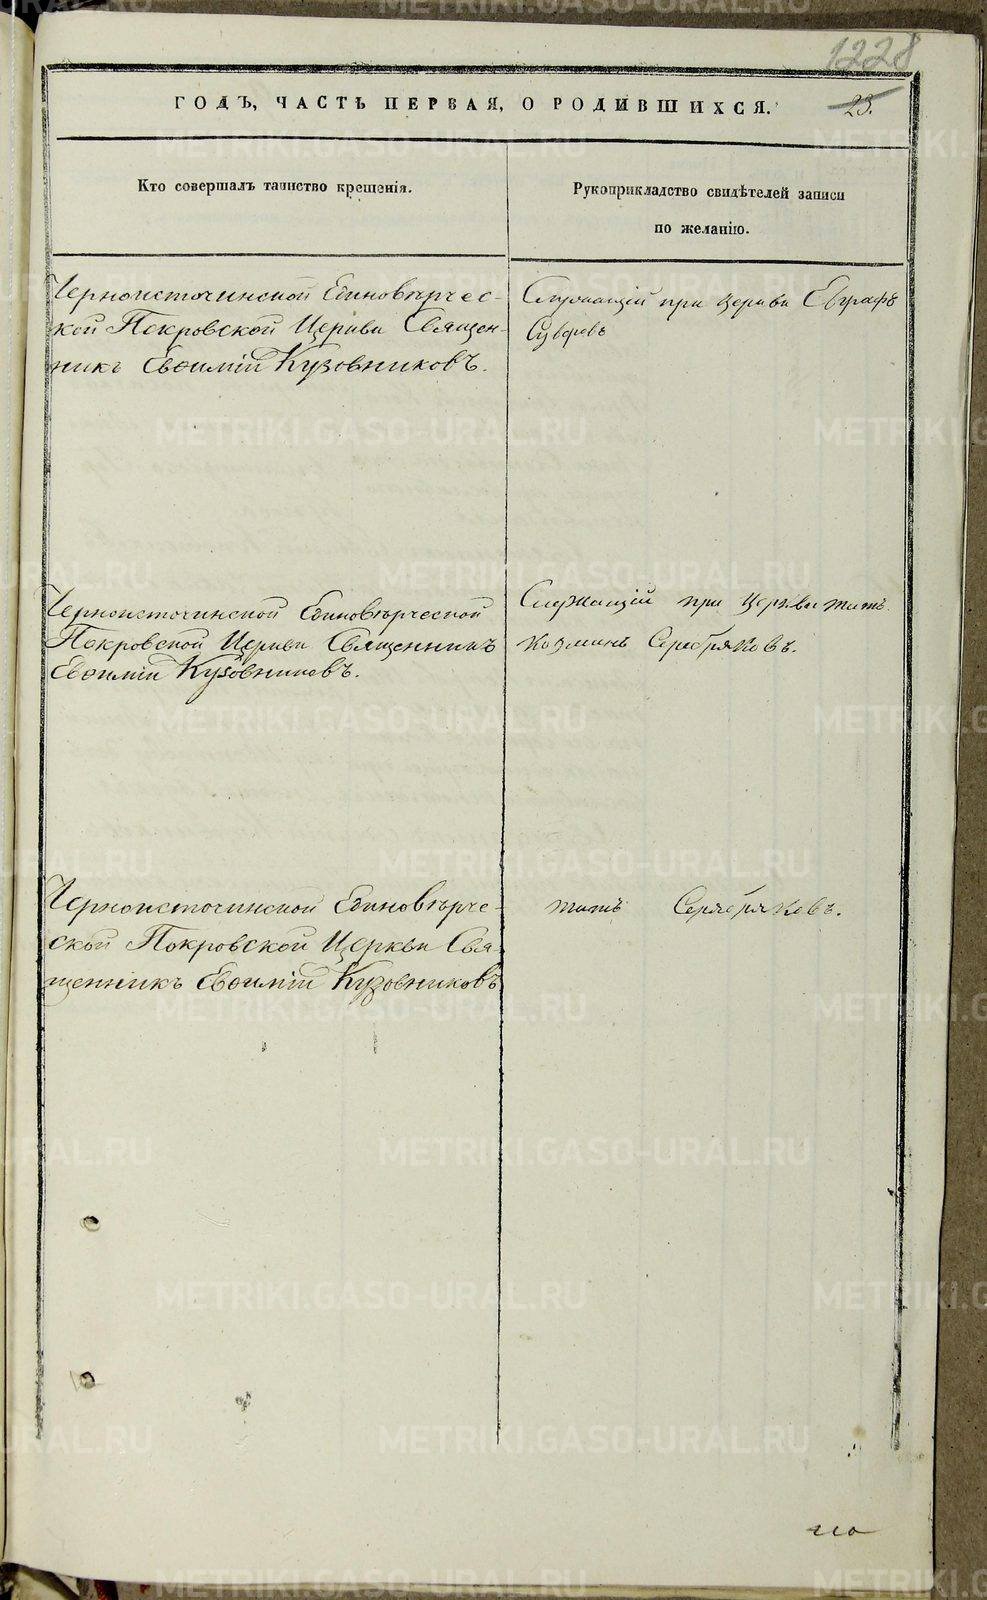 1228
ГОДЪ, ЧАСТЬ ПЕРВАЯ, О РОДИВШИХСЯ.
23.
Кто совершалъ таинство крещенія.
Рукоприкладство свидѣтелей записи
по желанію.
Черноисточинской Единовѣрчес-
кой Покровской Церкви Священ-
никъ Евѳимій Кузовниковъ.
Служащій при церкви Евграфъ
Черноисточинской Единовѣрческой
Покровской Церкви Священникъ
Евѳимій Кузовниковъ.
Служащій при Церкви тотъ
Козминъ Серебряковъ.
Черноисточинской Единовѣрче-
ской Покровской Церкви Свя-
щенникъ Евѳимій Кузовниковъ
тотъ Серебряковъ.
METRIKI.GASO-URAL.RU